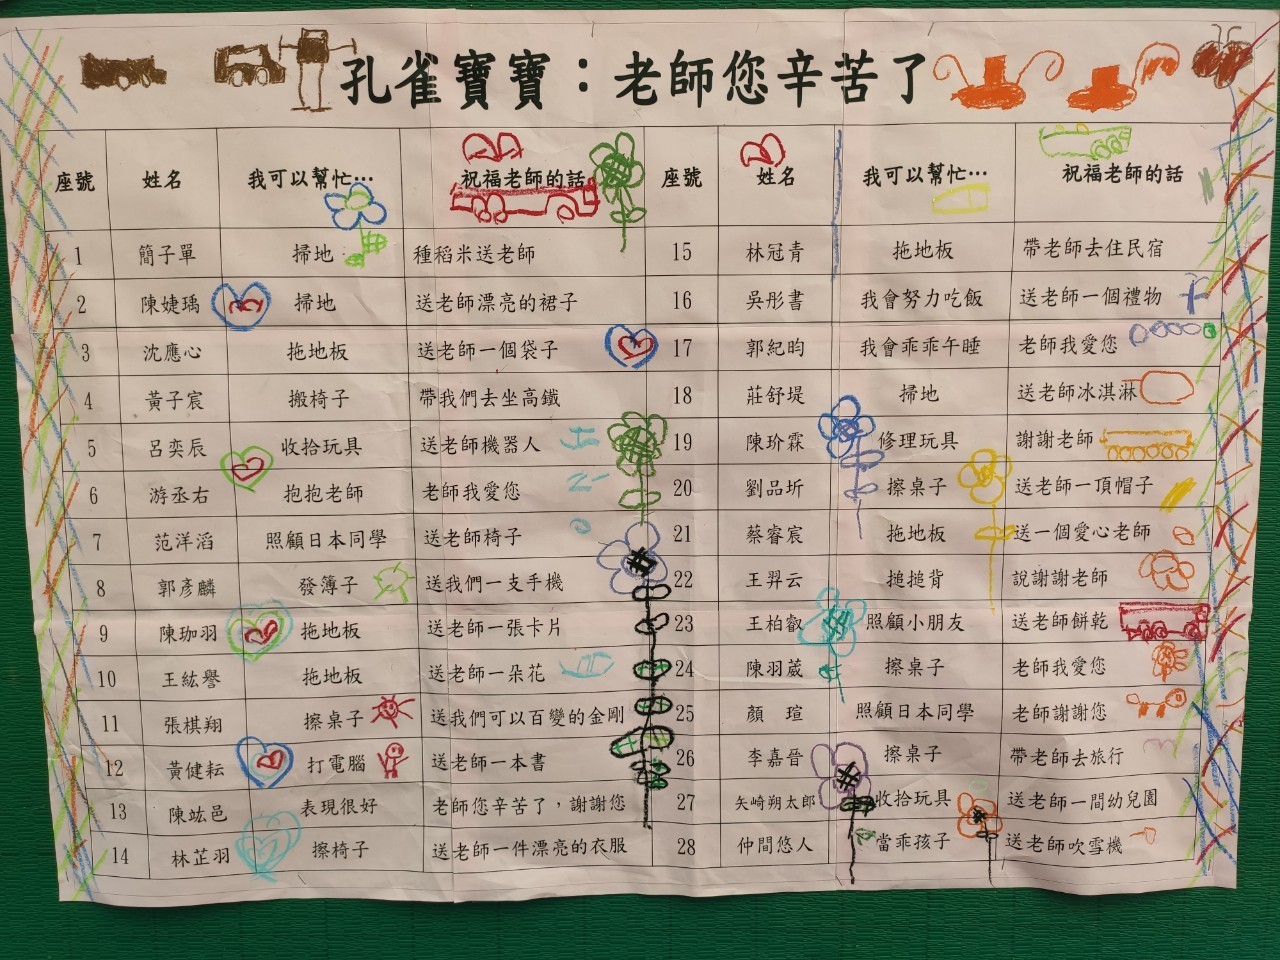 孔雀寶寶：老師您辛苦了
座號 姓名 我可以幫忙… 祝福老師的話 座號 姓名 我可以幫忙… 祝福老師的話
1 簡子單 掃地 種稻米送老師 15 林冠青 拖地板 帶老師去住民宿
2 陳婕瑀 掃地 送老師漂亮的裙子 16 吳彤書 我會努力吃飯 送老師一個禮物
3 沈應心 拖地板 送老師一個袋子 17 郭紀昀 我會乖乖午睡 老師我愛您
4 黃子宸 搬椅子 帶我們去坐高鐵 18 莊舒堤 掃地 送老師冰淇淋
5 呂奕辰 收拾玩具 送老師機器人 19 陳玠霖 修理玩具 謝謝老師
6 游丞右 抱抱老師 老師我愛您 20 劉品圻 擦桌子 送老師一頂帽子
7 范洋滔 照顧日本同學 送老師椅子 21 蔡睿宸 拖地板 送一個愛心老師
8 郭彥麟 發簿子 送我們一支手機 22 王羿云 搥搥背 說謝謝老師
9 陳珈羽 拖地板 送老師一張卡片 23 王柏叡 照顧小朋友 送老師餅乾
10 王紘譽 拖地板 送老師一朵花 24 陳羽葳 擦桌子 老師我愛您
11 張棋翔 擦桌子 送我們可以百變的金剛 25 顏 瑄 照顧日本同學 老師謝謝您
12 黃健耘 打電腦 送老師一本書 26 李嘉晉 擦桌子 帶老師去旅行
13 陳竑邑 表現很好 老師您辛苦了，謝謝您 27 矢崎朔太郎 收拾玩具 送老師一間幼兒園
14 林芷羽 擦椅子 送老師一件漂亮的衣服 28 仲間悠人 當乖孩子 送老師吹雪機